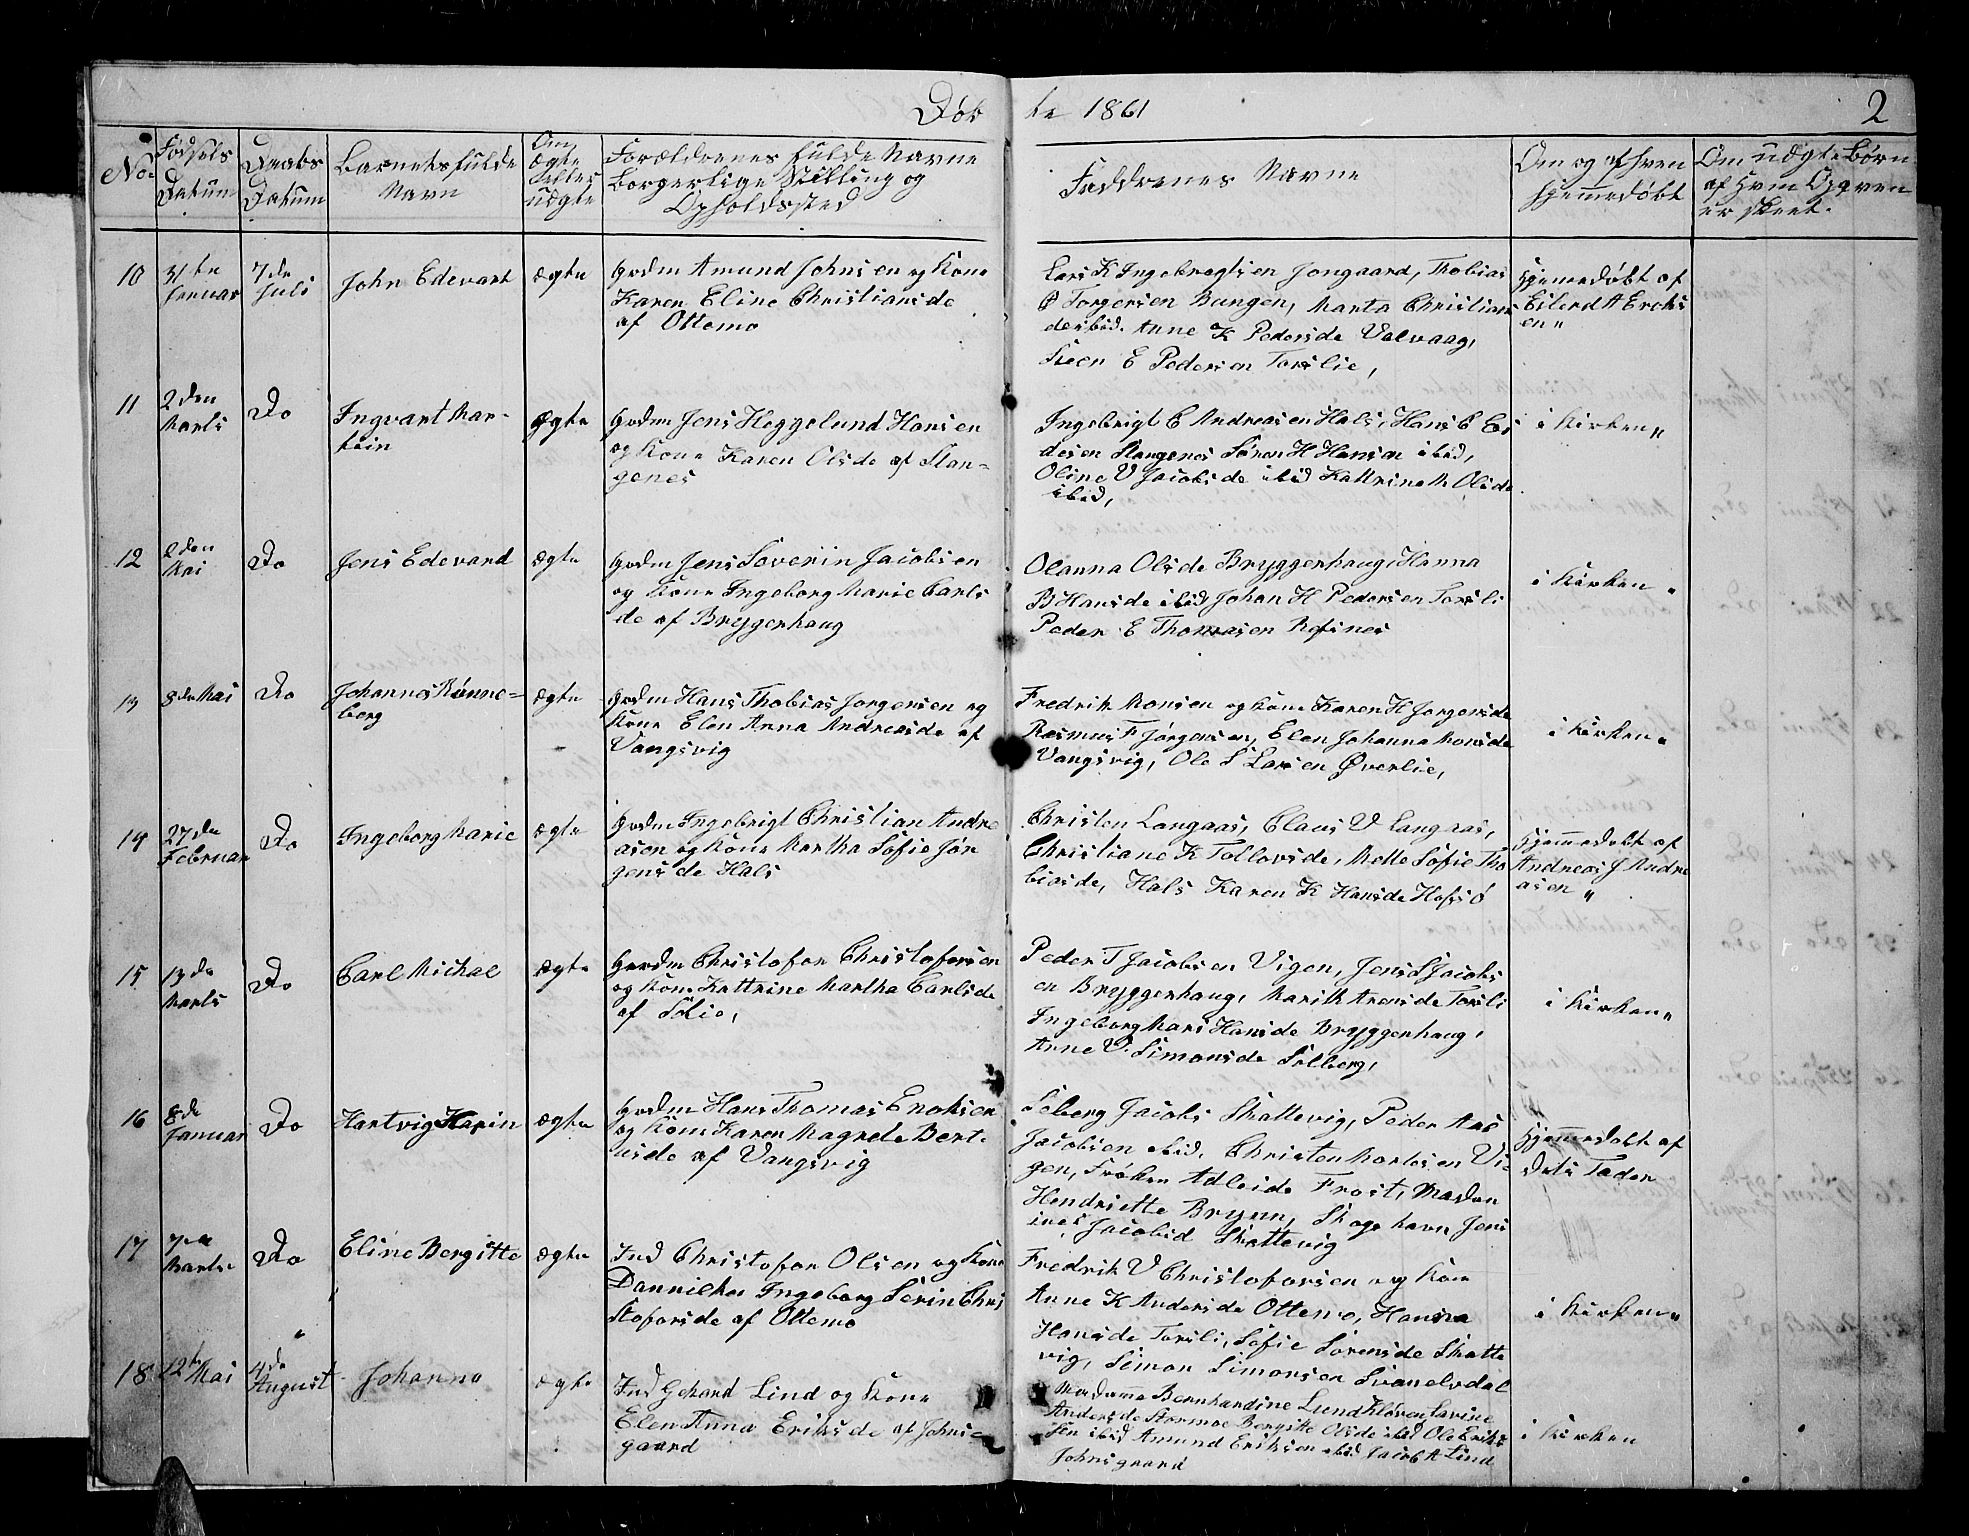 Døbte 1861
2
No.
Fødsels Datum
Daabs Datum
Barnets fulde Navn
Om ægte eller uægte
Forældrenes fulde Navne
borgerlige Stilling og
Opholdssted
Faddrenes Navne
Om og af hvem
hjemmedøbt
Om uægte Børn
af hvem Opgaven
er skeet.
10
31te Januar
7de Juli
John Edevart
ægte
Grdm Amund Johnsen og Kone
Karen Eline Christiansde
af Ottemo
Lars K Ingebregtsen Jongaard, Thobias
P Torgersen Bungen, Marta Christians
de ibid. Anne K Pedersde Valvaag,
Steen E Pedersen Torslie,
hjemmedøbt af
Eilerd A Eroks
en "
11
2den Marts
Do
Ingvart Mar-
tin
ægte
Grdm Jens Heggelund Hansen
og Kone Karen Olsde af Stan-
genes
Ingebrigt C Andreasen Hals, Hans C
desen Stangenes Sören H Hansen ibid,
Oline V Jacobsde ibid Kattrine M Olsde
ibid,
i Kirken "
12
2den Mai
Do
Jens Edevard
ægte
Grdm Jens Severin Jacobsen
og Kone Ingeborg Marie Carls
de af Bryggerhaug
Olanna Olsde Bryggerhaug, Hanna
B Hansde ibid Johan H Pedersen Torsli
Peder E Thomasen Refsnes
i Kirken "
13
8de Mai
Do
Johannes Rönne=
berg
ægte
Grdm Hans Thobias Jorgensen og
Kone Elen Anna Andersde af
Vangsvig
Fredrik Monsen og Kone Karen H Jorgensde
Rasmus F Jörgensen, Elen Johanna Monsde
Vangsvig, Ole S Larsen Øverlie,
i Kirken "
14
27de Februar
Do
Ingeborg Marie
ægte
Grdm Ingebrigt Christian Andre
asen og Kone Martha Sofie Jör
gensde Hals
Christen Langaas, Claus V Langaas,
Christiane K Tollevsde, Mette Sofie Tho
biasde, Hals Karen K Hansde Hofsö
hjemmedøbt af
Andreas J Andre
asen "
15
13de Marts
Do
Carl Michal
ægte
Gaardm Christofer Christofersen
og Kone Kattrine Martha Carlsde
af Silie,
Peder T Jacobsen Vigen, Jens S Jacobs
en Bryggerhaug, Marith Arensde Torsli
Ingeborg Mari Hansde Bryggerhaug,
Anne V. Simonsde Solberg,
i Kirken "
16
8de Januar
Do
Hartvig Karin
ægte
Grdm Hans Thomas Enoksen
og Kone Karen Magrete Bert-
usde af Vangsvig
Soberg Jacobs Skattevig, Peder Aas
Jacobsen ibid, Christen Mortesen Vi=
gen, Fröken Adleide Frost, Madam
Henriette Brynn, Skogshavn, Jens
Jacobsd Skattevig
hjemmedøbt af
dets Fader
17
7de Marts
Do
Eline Bergitte
ægte
Ind Christofer Olsen og Kone
Dannilka Ingeborg Serin Chri
stofersde af Ottemo
Fredrik V Christofersen og Kone
Anne K Andersde Ottemo, Hanna
Hansde Torsli, Sofie Sörensde Skatte
vig, Simon Simonsen Svanelvdal
i Kirken "
18
12te Mai
4de August
Johanna
ægte
Ind Gehard Lind og Kone
Elen Anna Eriksde af Johns=
gaard
Madame Bernhardine Lund Klöven Sarine
Andersde Stormoe Bergitte Olsde ibid Ole Erik=
sen ibid Amund Eriksen ibid Jacob A Lind
Johnsgaard
i Kirken